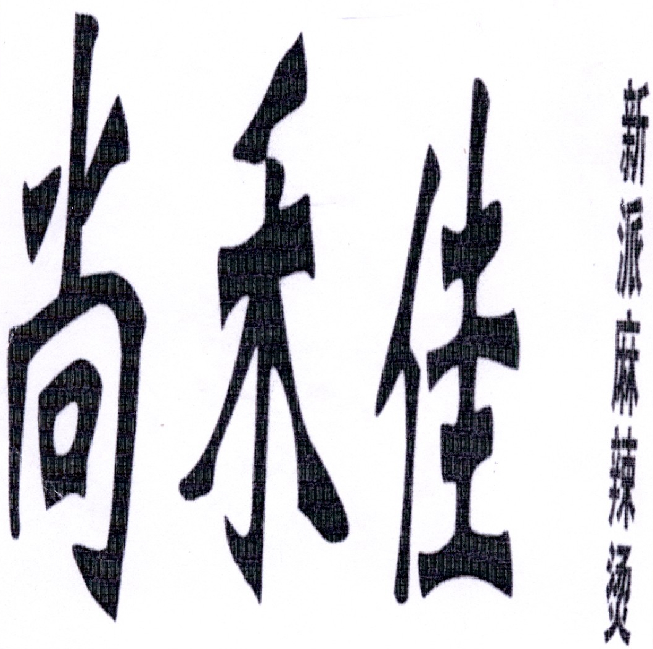 尚禾佳
新派麻辣烫